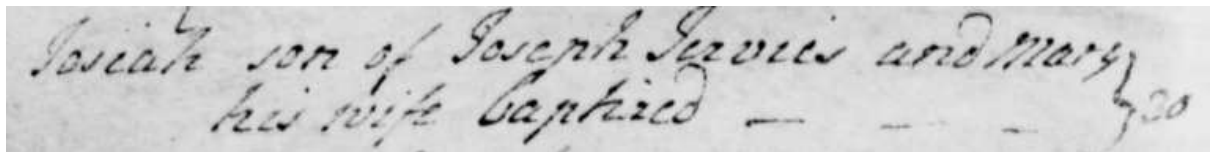 Josiah son of Joseph Jervies and Mary } 20
his wife baptized — — —